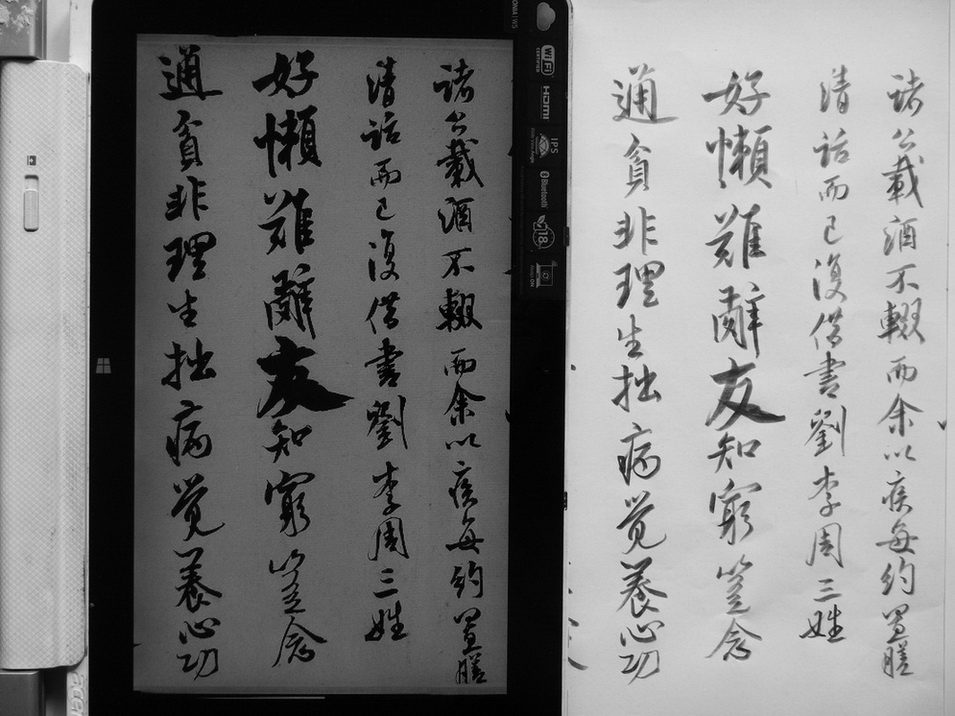 諸公載酒不輟而余以疾每約置膳
清話而已復借書劉李周三姓
好懶難辭友知窮豈念
通貧非理生拙病覺養心功
諸公載酒不輟而余以疾每約置膳
清話而已復借書劉李周三姓
好懶難辭友知窮豈念
通貧非理生拙病覺養心功
WiFi
CERTIFIED
HDMI
IPS
Bluetooth
18
acer